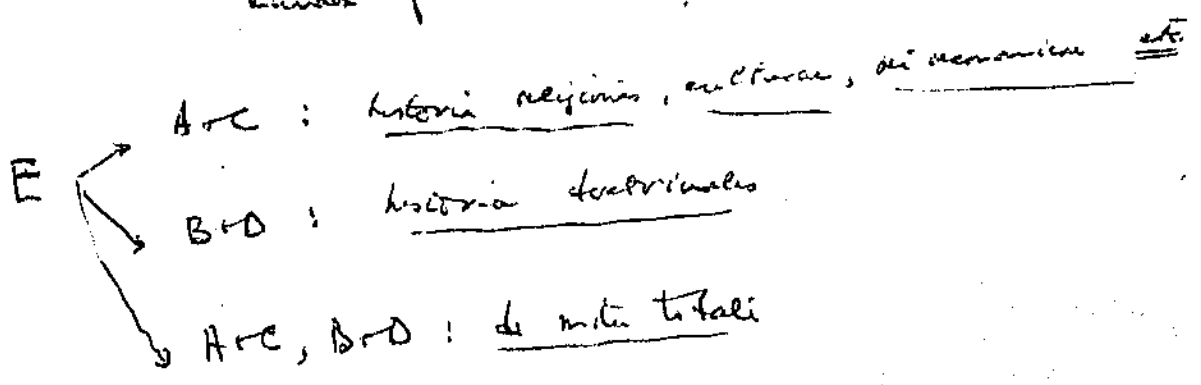 A+C : historia religionis, culturae, rei oeconomicae etc.
E
B+D : historia doctrinales
A+C, B+D : de motu totali